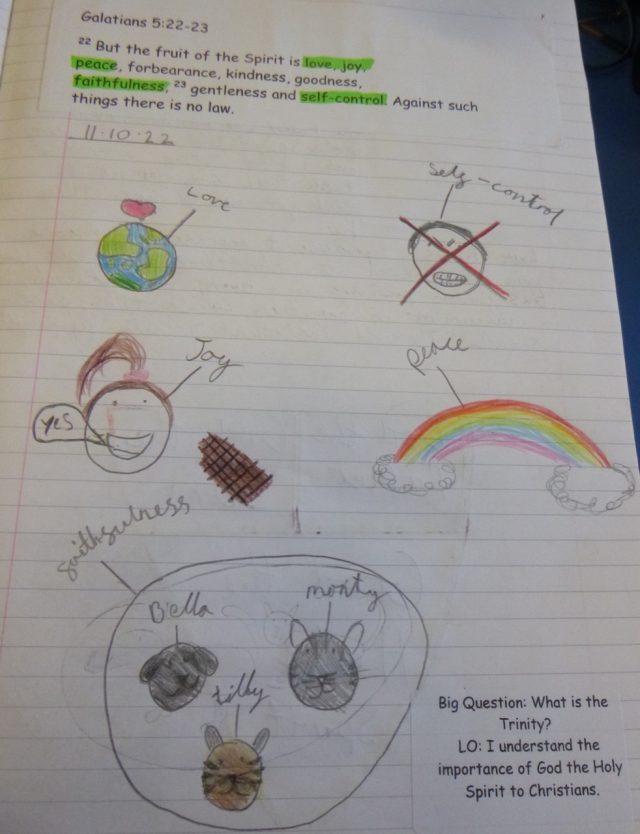 Galatians 5:22-23
22 But the fruit of the Spirit is love, joy,
peace, forbearance, kindness, goodness,
faithfulness, 23 gentleness and self-control. Against such
things there is no law.
11.10.22
Love
Self-control
Joy
peace
yes
faithfulness
Bella
monty
tilly
Big Question: What is the
Trinity?
LO: I understand the
importance of God the Holy
Spirit to Christians.